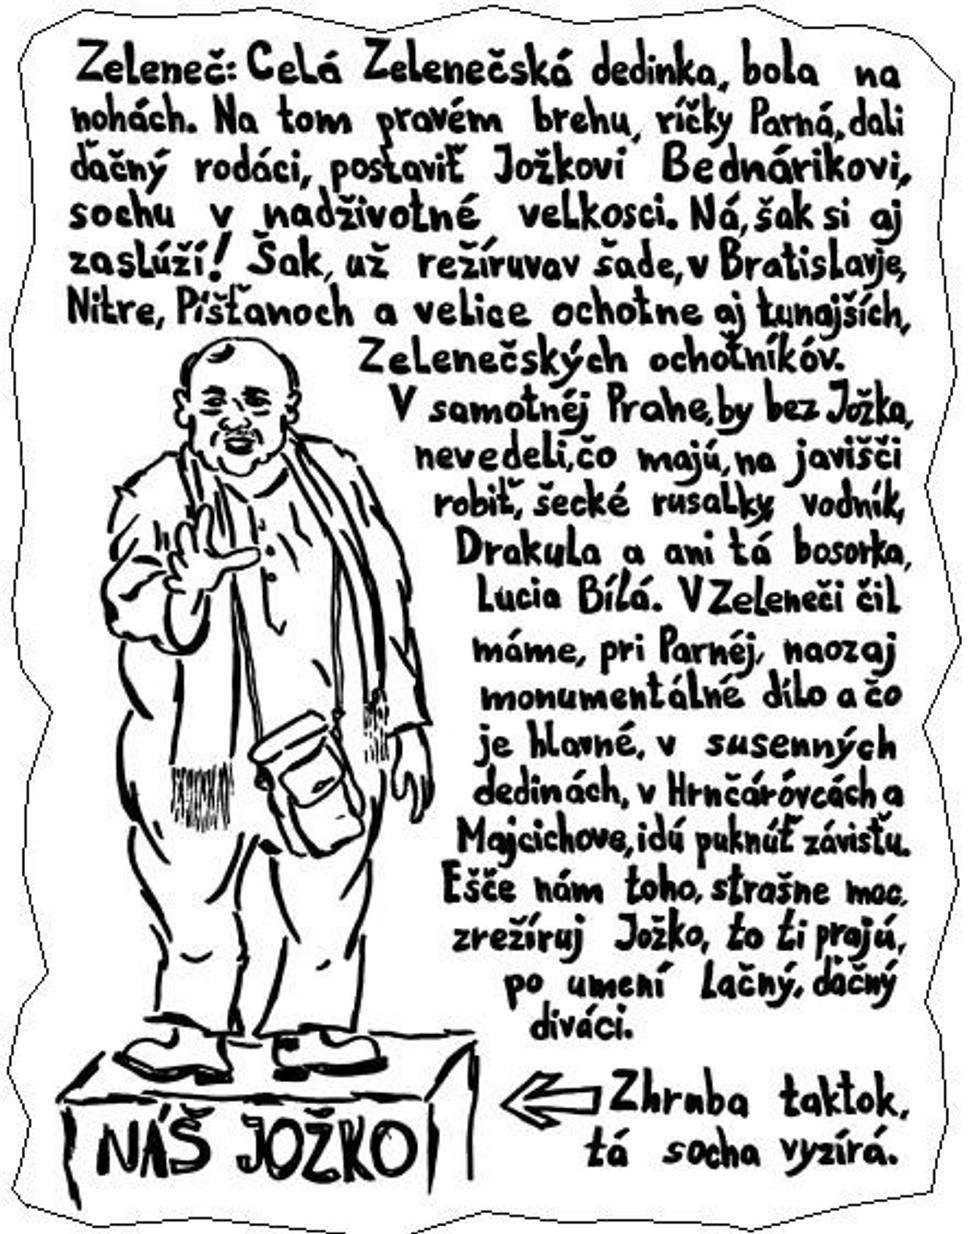 Zeleneč: Celá Zelenečská dedinka, bola na
nohách. Na tom pravém brehu, ríčky Parná, dali
ďačný rodáci, postaviť Jožkovi Bednárikovi,
sochu v nadživotné velkosci. Ná, šak si aj
zaslúží! Šak, už režíruvav šade, v Bratislavje,
Nitre, Píšťanoch a velice ochotne aj tunajších,
Zelenečských ochotníkóv.
V samotnéj Prahe, by bez Jožka,
nevedeli, čo majú, na javišči
robiť, šecké rusalky, vodník,
Drakula a ani tá bosorka,
Lucia Bílá. V Zeleneči čil
máme, pri Parnéj, naozaj
monumentálné dílo a čo
je hlavné, v susenných
dedinách, v Hrnčáróvcách a
Majcichove, idú puknúť závisťu.
Ešče nám toho, strašne moc,
zrežíruj Jožko, to ti prajú,
po umení lačný, ďačný
diváci.
Zhruba taktok,
tá socha vyzírá.
NÁŠ JOŽKO